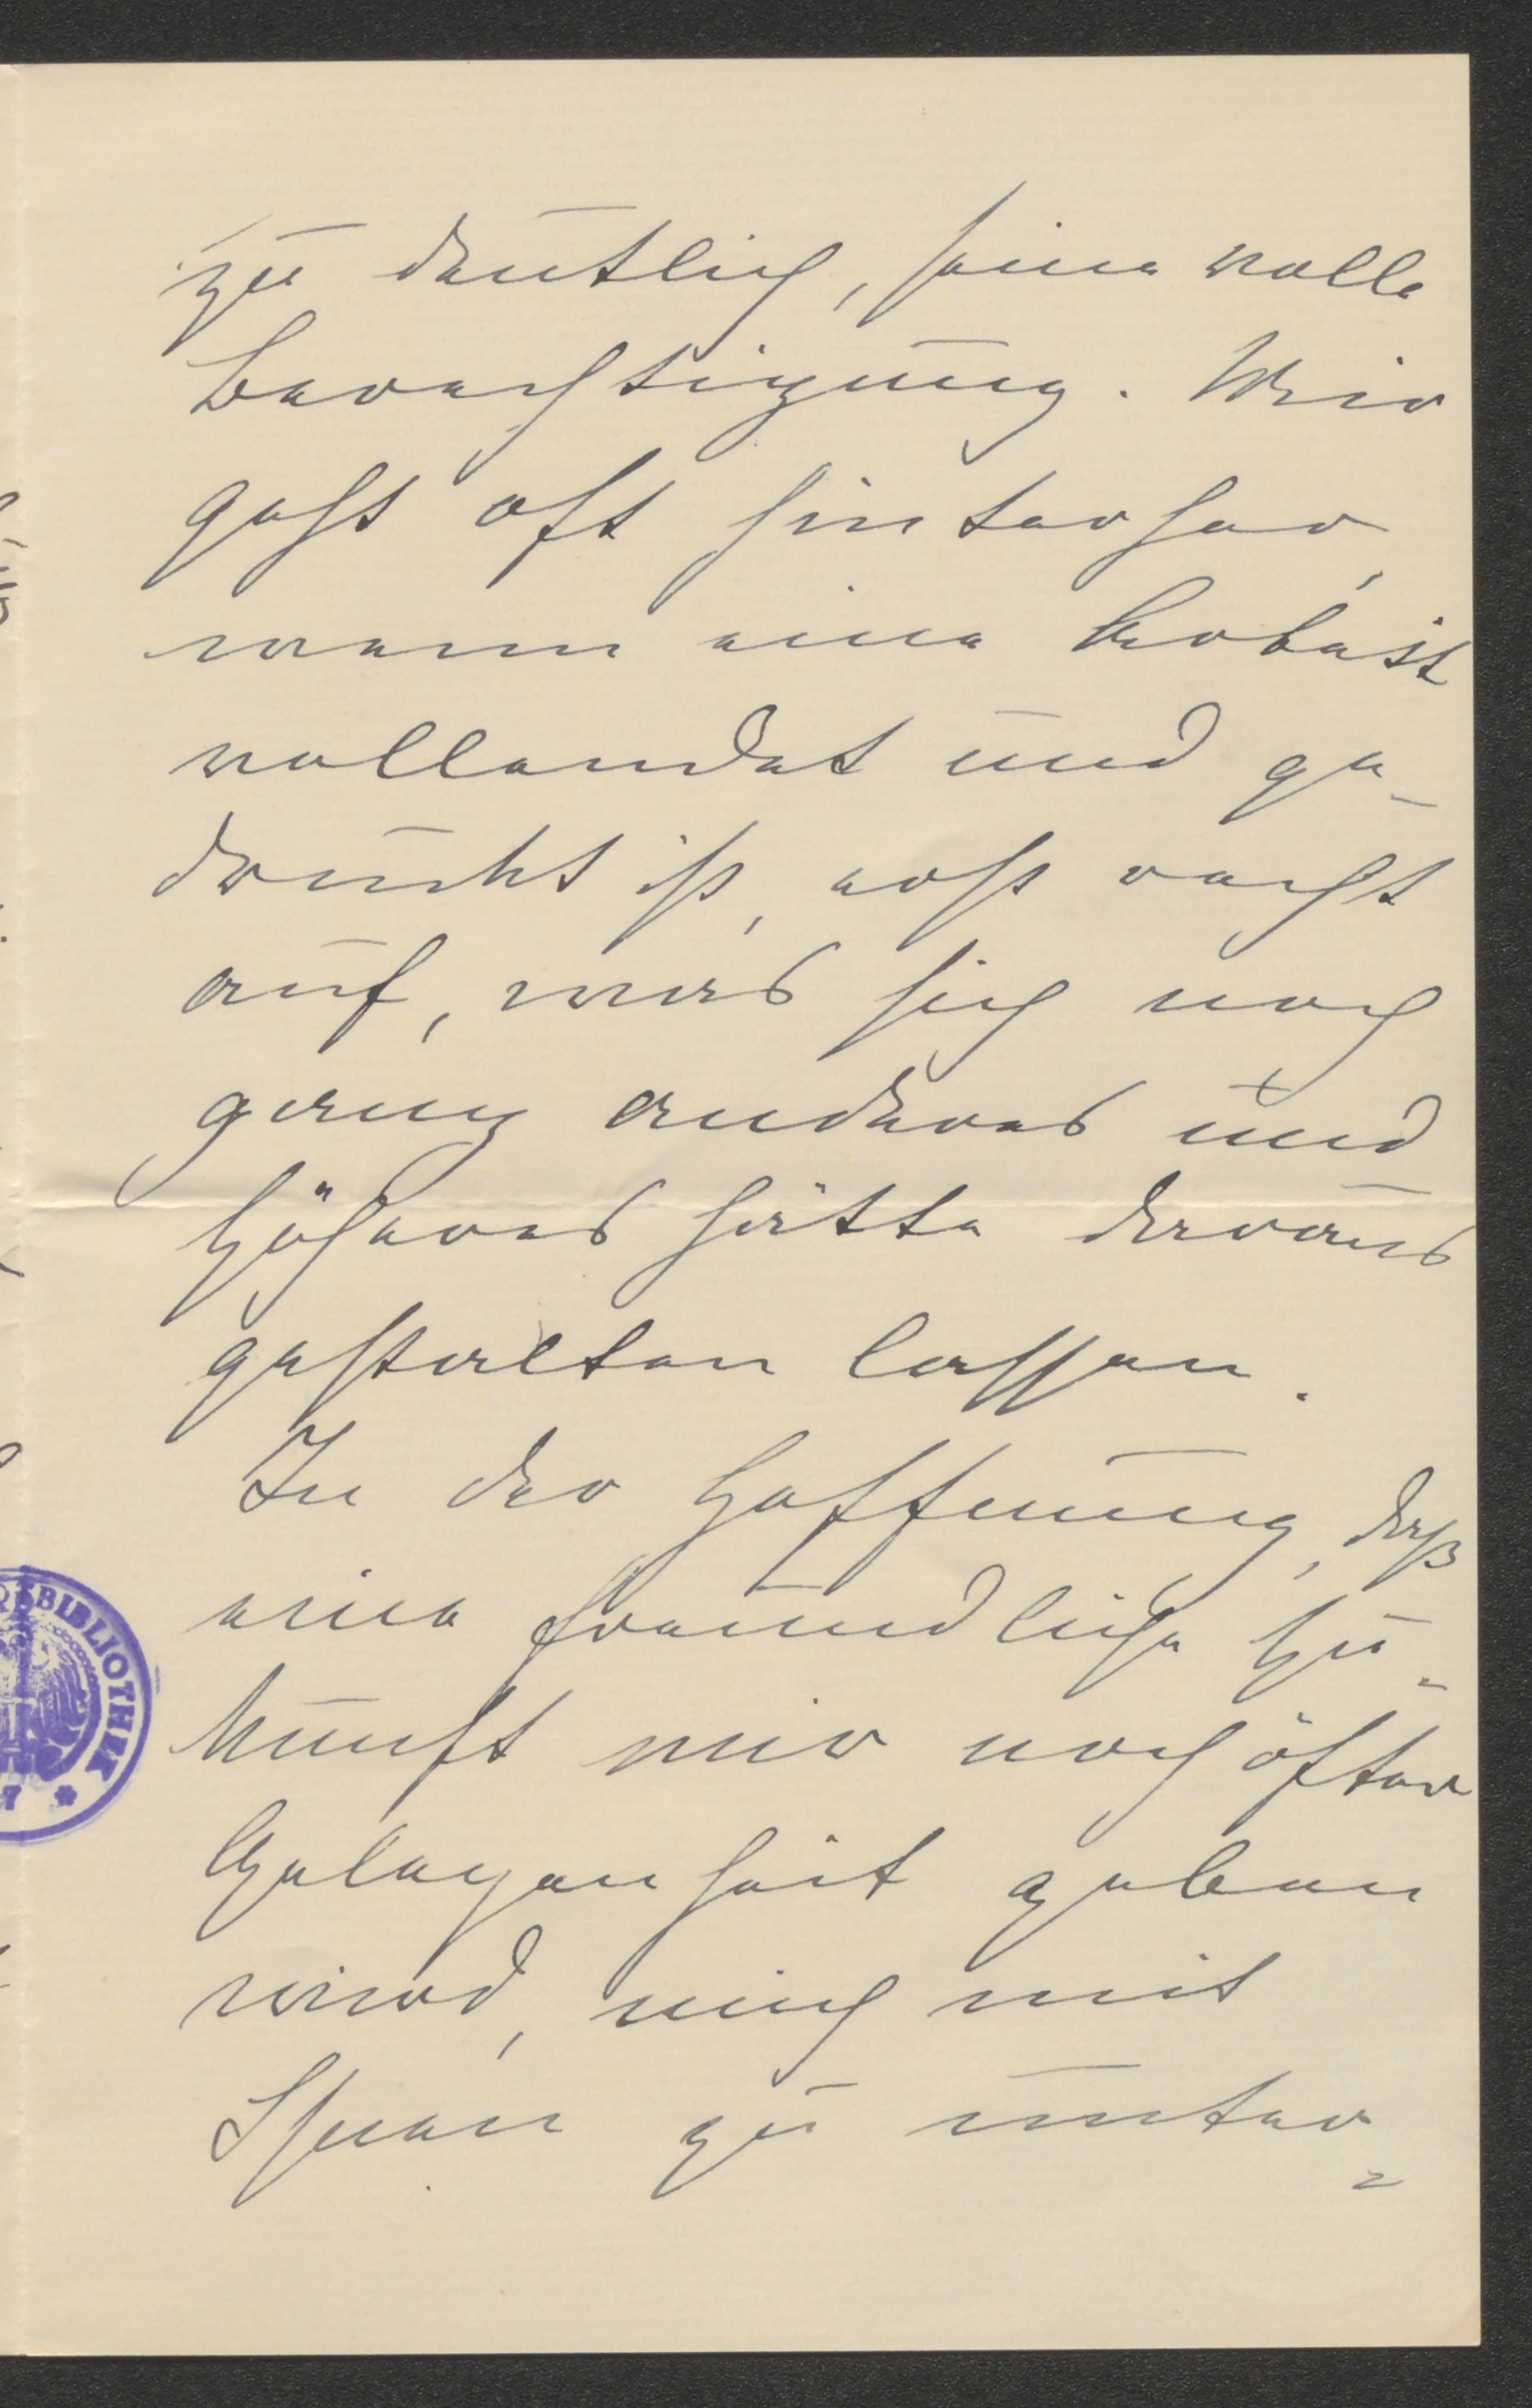 zu deutlich, seine volle
Berechtigung. Mir
geht oft hinterher,
wenn eine Arbeit
vollendet und ge-
druckt ist, erst recht
auf, was sich noch
ganz anderes und
Höheres hätte daraus
gestalten lassen.
In der Hoffnung, daß
eine freundliche Zu-
kunft mir noch öfter
Gelegenheit geben
wird, mich mit
Ihnen zu unter-
RSBIBLIOTHEK
7 *